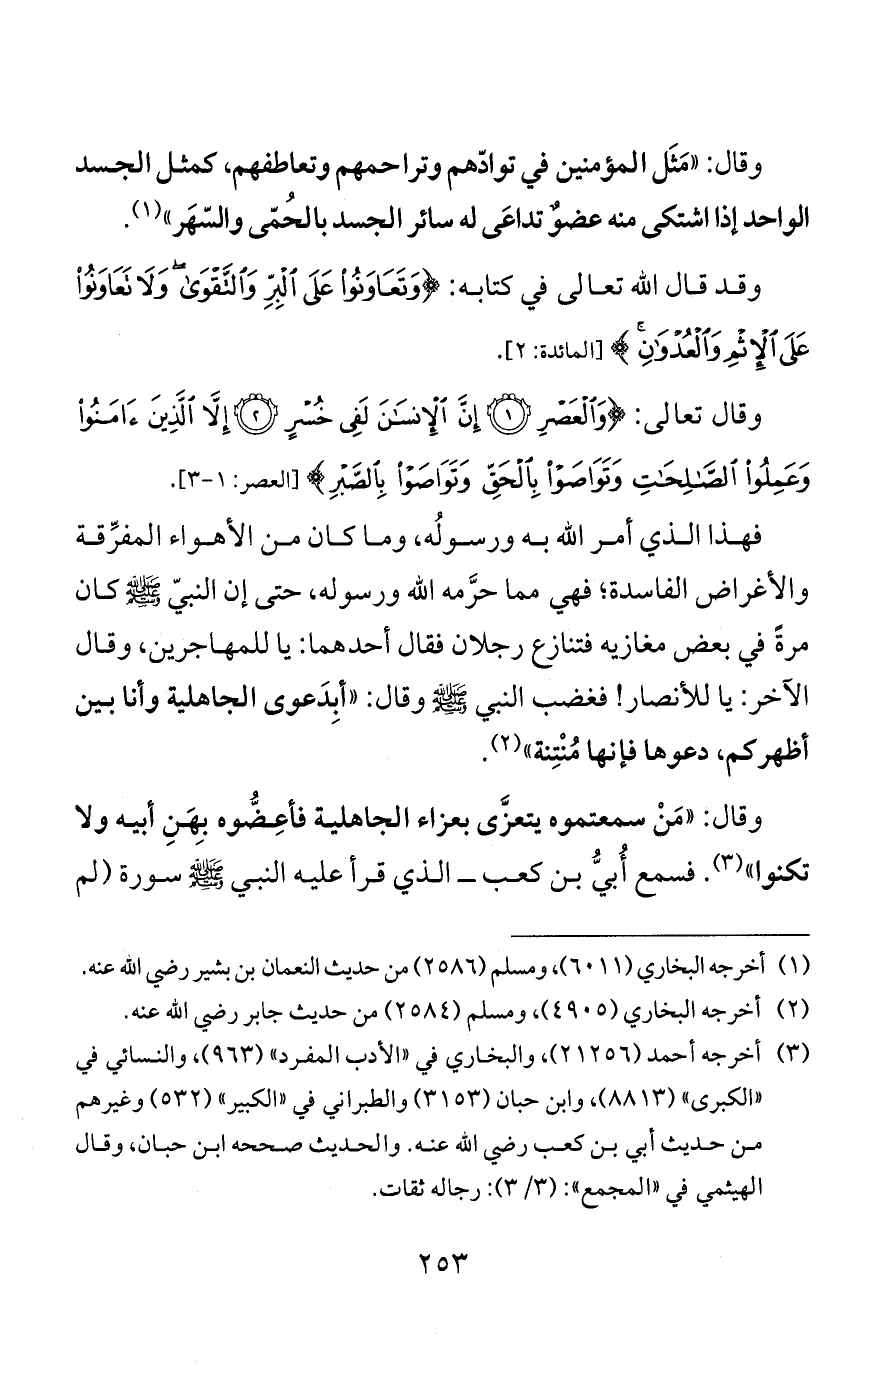 وقال: «مَثَل المؤمنين في توادّهم وتراحمهم وتعاطفهم، كمثل الجسد
الواحد إذا اشتكى منه عضوٌ تداعَى له سائر الجسد بالحُمّى والسّهَر»(١).
وقد قال الله تعالى في كتابه: ﴿وَتَعَاوَنُوا۟ عَلَى ٱلْبِرِّ وَٱلتَّقْوَىٰ ۖ وَلَا تَعَاوَنُوا۟
عَلَى ٱلْإِثْمِ وَٱلْعُدْوَٰنِ ۚ﴾ [المائدة: ٢].
وقال تعالى: ﴿وَٱلْعَصْرِ ۝١ إِنَّ ٱلْإِنسَـٰنَ لَفِى خُسْرٍ ۝٢ إِلَّا ٱلَّذِينَ ءَامَنُوا۟
وَعَمِلُوا۟ ٱلصَّـٰلِحَـٰتِ وَتَوَاصَوْا۟ بِٱلْحَقِّ وَتَوَاصَوْا۟ بِٱلصَّبْرِ﴾ [العصر: ١-٣].
فهذا الذي أمر الله به ورسولُه، وما كان من الأهواء المفرِّقة
والأغراض الفاسدة؛ فهي مما حرَّمه الله ورسوله، حتى إن النبيّ ﷺ كان
مرةً في بعض مغازيه فتنازع رجلان فقال أحدهما: يا للمهاجرين، وقال
الآخر: يا للأنصار! فغضب النبي ﷺ وقال: «أبِدَعوى الجاهلية وأنا بين
أظهركم، دعوها فإنها مُنْتِنة»(٢).
وقال: «مَنْ سمعتموه يتعزَّى بعزاء الجاهلية فأعِضُّوه بِهَنِ أبيه ولا
تكنوا»(٣). فسمع أُبيُّ بن كعب ـ الذي قرأ عليه النبي ﷺ سورة (لم
(١) أخرجه البخاري (٦٠١١)، ومسلم (٢٥٨٦) من حديث النعمان بن بشير رضي الله عنه.
(٢) أخرجه البخاري (٤٩٠٥)، ومسلم (٢٥٨٤) من حديث جابر رضي الله عنه.
(٣) أخرجه أحمد (٢١٢٥٦)، والبخاري في «الأدب المفرد» (٩٦٣)، والنسائي في
«الكبرى» (٨٨١٣)، وابن حبان (٣١٥٣) والطبراني في «الكبير» (٥٣٢) وغيرهم
من حديث أبي بن كعب رضي الله عنه. والحديث صححه ابن حبان، وقال
الهيثمي في «المجمع»: (٣/ ٣): رجاله ثقات.
٢٥٣